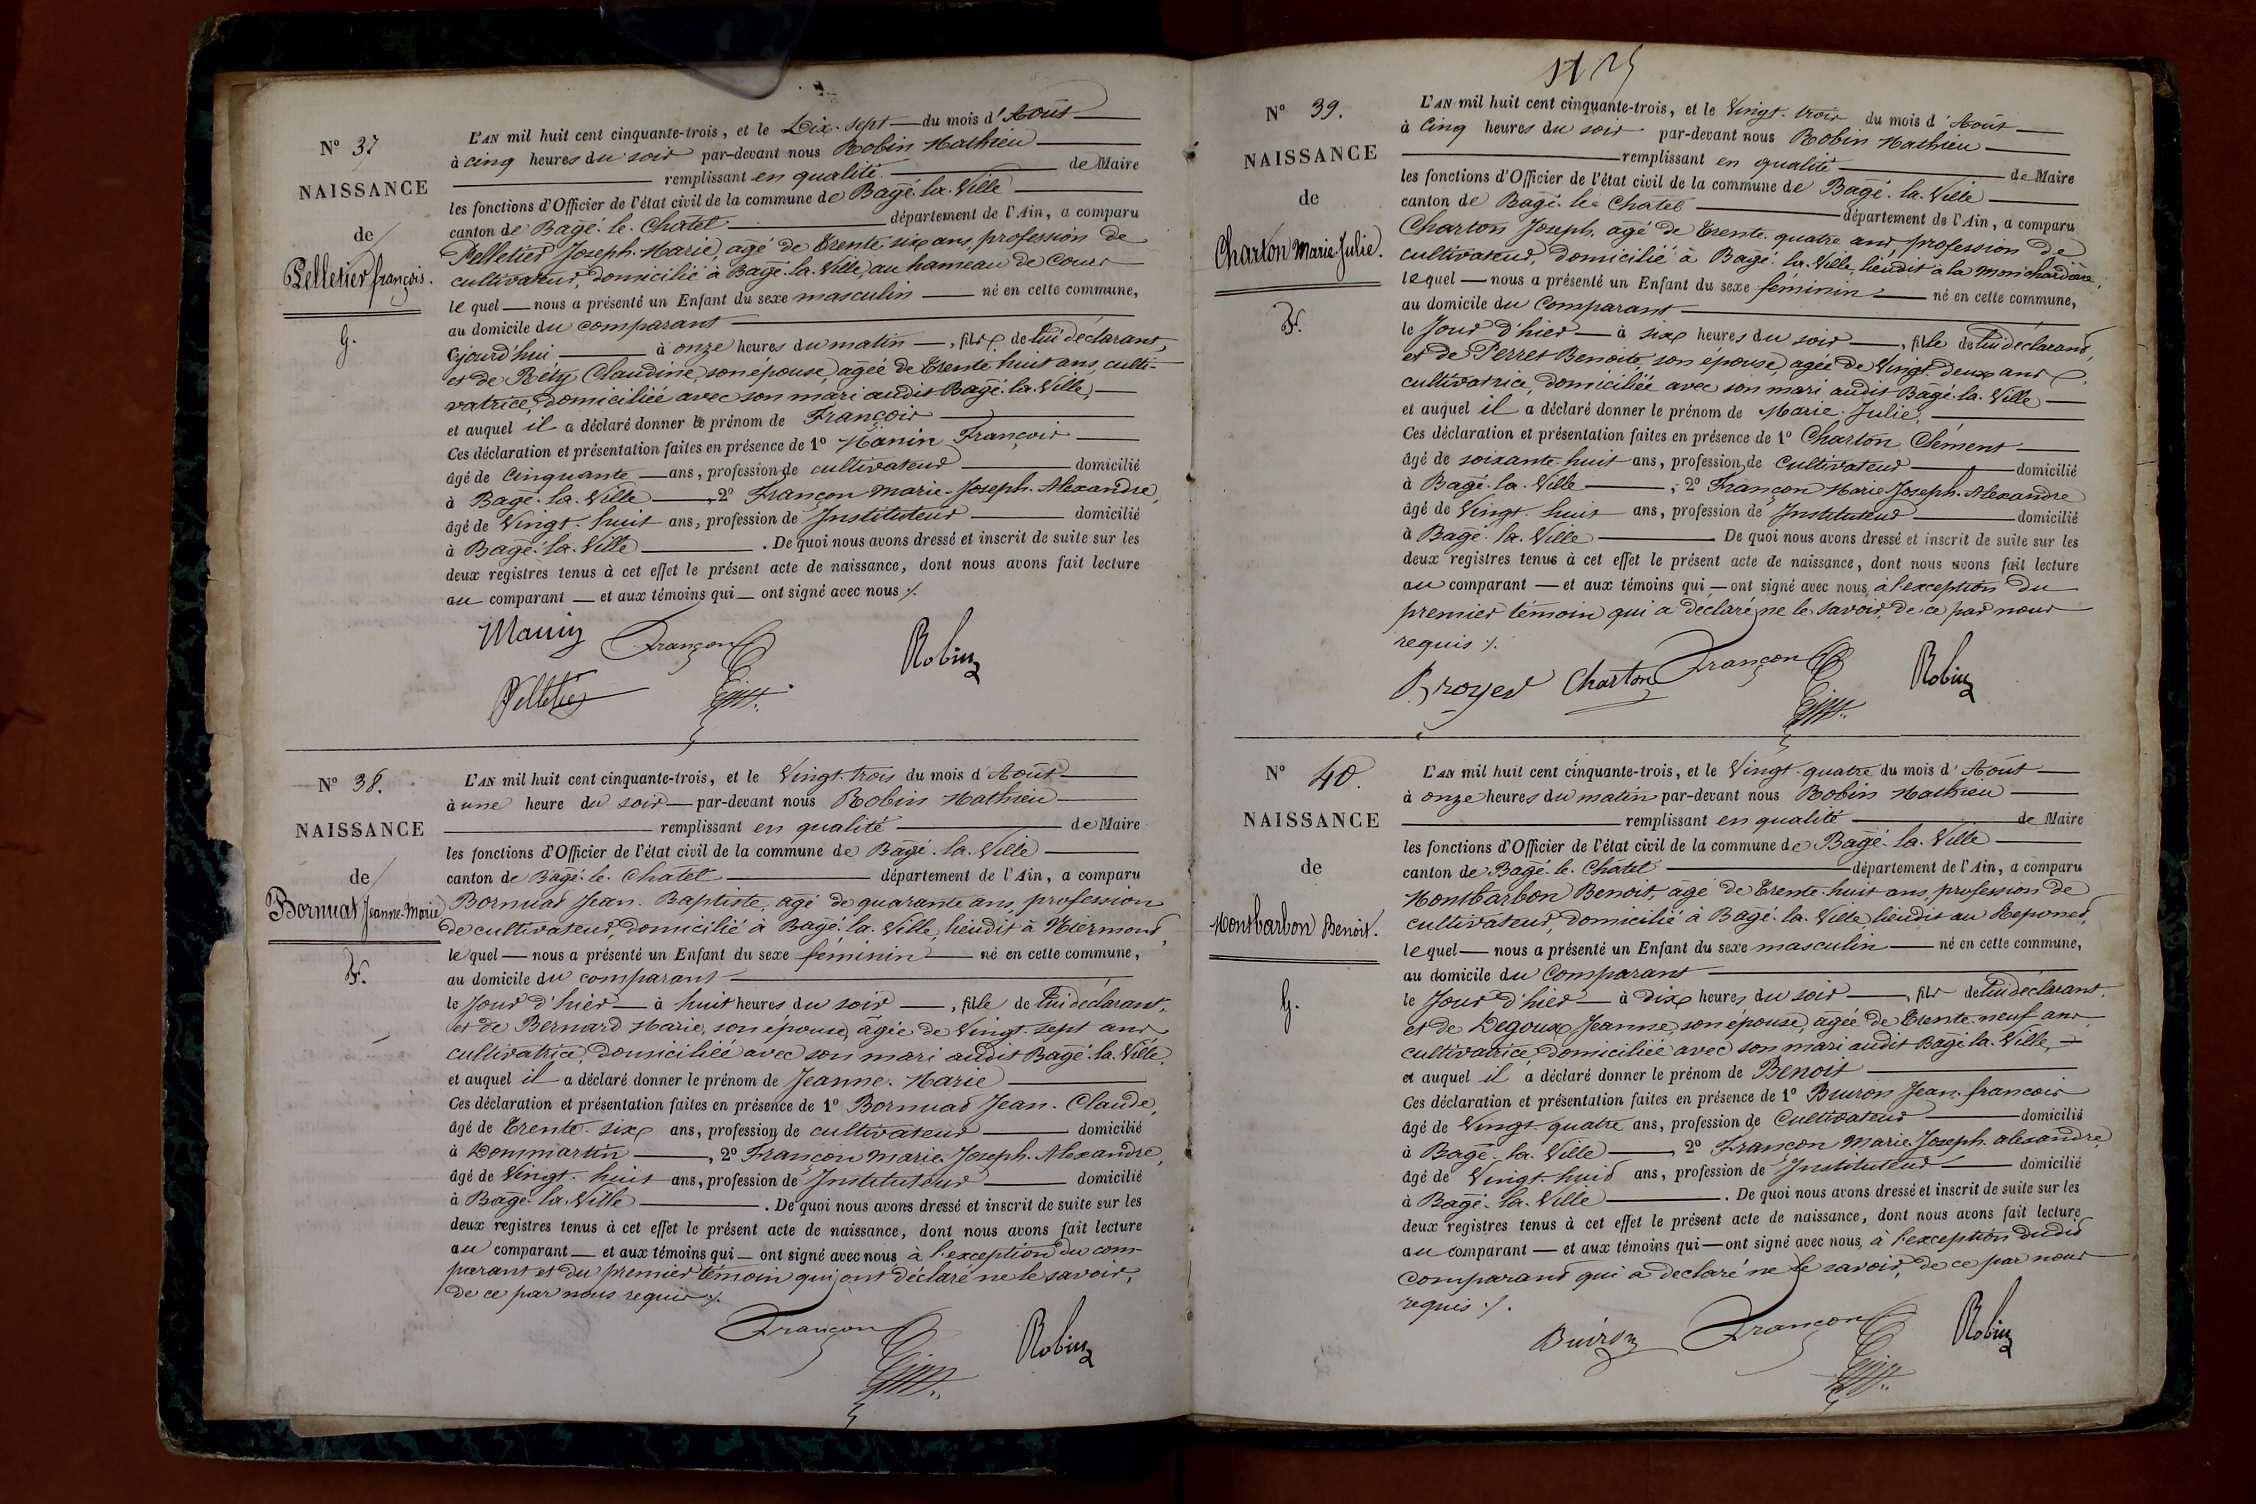 Nº 37
NAISSANCE
de
Pelletier françois.
G.
L'AN mil huit cent cinquante-trois, et le Dix-sept du mois d'Août
à cinq heures du soir par-devant nous Robin Mathieu
remplissant en qualité de Maire
les fonctions d'Officier de l'état civil de la commune de Bagé-la-Ville
canton de Bagé-le-Châtel département de l'Ain, a comparu
Pelletier Joseph-Marie, agé de trente six ans, profession de
cultivateur, domicilié à Bagé-la-Ville, au hameau de Cour
lequel nous a présenté un Enfant du sexe masculin né en cette commune,
au domicile du comparant
cejourd'hui à onze heures du matin, fils de lui déclarant,
et de Réty Claudine, son épouse, agée de trente huit ans, culti-
vatrice, domiciliée avec son mari audit Bagé-la-Ville,
et auquel il a déclaré donner le prénom de François
Ces déclaration et présentation faites en présence de 1º Manin François
âgé de Cinquante ans, profession de cultivateur domicilié
à Bagé-la-Ville, 2º Françon Marie-Joseph-Alexandre,
âgé de Vingt-huit ans, profession de Instituteur domicilié
à Bagé-la-Ville. De quoi nous avons dressé et inscrit de suite sur les
deux registres tenus à cet effet le présent acte de naissance, dont nous avons fait lecture
au comparant et aux témoins qui ont signé avec nous ./.
Manin Françon Robin
Pelletier
Nº 38.
NAISSANCE
de
Bornuat Jeanne-Marie
F.
L'AN mil huit cent cinquante-trois, et le Vingt-trois du mois d'Août
à une heure du soir par-devant nous Robin Mathieu
remplissant en qualité de Maire
les fonctions d'Officier de l'état civil de la commune de Bagé-la-Ville
canton de Bagé-le-Châtel département de l'Ain, a comparu
Bornuat Jean-Baptiste, agé de quarante ans, profession
de cultivateur, domicilié à Bagé-la-Ville, lieudit à
lequel nous a présenté un Enfant du sexe féminin né en cette commune,
au domicile du comparant
le Jour d'hier à huit heures du soir, fille de lui déclarant,
et de Bernard Marie, son épouse, âgée de Vingt-sept ans
cultivatrice, domiciliée avec son mari audit Bagé-la-Ville,
et auquel il a déclaré donner le prénom de Jeanne-Marie
Ces déclaration et présentation faites en présence de 1º Bornuat Jean-Claude,
âgé de trente-six ans, profession de cultivateur domicilié
à Dommartin, 2º Françon Marie-Joseph-Alexandre,
âgé de Vingt-huit ans, profession de Instituteur domicilié
à Bagé-la-Ville. De quoi nous avons dressé et inscrit de suite sur les
deux registres tenus à cet effet le présent acte de naissance, dont nous avons fait lecture
au comparant et aux témoins qui ont signé avec nous à l'exception du com-
parant et du premier témoin qui ont déclaré ne le savoir,
de ce par nous requis ./.
Françon Robin
Nº 39.
NAISSANCE
de
Charton Marie-Julie.
F.
L'AN mil huit cent cinquante-trois, et le Vingt-trois du mois d'Août
à Cinq heures du soir par-devant nous Robin Mathieu
remplissant en qualité de Maire
les fonctions d'Officier de l'état civil de la commune de Bagé-la-Ville
canton de Bagé-le-Châtel département de l'Ain, a comparu
Charton Joseph, agé de trente-quatre ans, profession de
cultivateur, domicilié à Bagé-la-Ville, lieudit à la
lequel nous a présenté un Enfant du sexe féminin né en cette commune,
au domicile du Comparant
le Jour d'hier à six heures du soir, fille de lui déclarant,
et de Perret Benoite, son épouse, agée de Vingt-deux ans
cultivatrice, domiciliée avec son mari audit Bagé-la-Ville
et auquel il a déclaré donner le prénom de Marie-Julie,
Ces déclaration et présentation faites en présence de 1º Charton Clément
âgé de soixante-huit ans, profession de Cultivateur domicilié
à Bagé-la-Ville, 2º Françon Marie Joseph-Alexandre
âgé de Vingt-huit ans, profession de Instituteur domicilié
à Bagé-la-Ville De quoi nous avons dressé et inscrit de suite sur les
deux registres tenus à cet effet le présent acte de naissance, dont nous avons fait lecture
au comparant et aux témoins qui ont signé avec nous, à l'exception du
premier témoin qui a déclaré ne le savoir, de ce par nous
requis ./.
Broyer Charton Françon Robin
Nº 40.
NAISSANCE
de
Montbarbon Benoit.
G.
L'AN mil huit cent cinquante-trois, et le Vingt-quatre du mois d'Août
à onze heures du matin par-devant nous Robin Mathieu
remplissant en qualité de Maire
les fonctions d'Officier de l'état civil de la commune de Bagé-la-Ville
canton de Bagé-le-Châtel département de l'Ain, a comparu
Montbarbon Benoit, agé de trente-huit ans, profession de
cultivateur, domicilié à Bagé-la-Ville, lieudit au
lequel nous a présenté un Enfant du sexe masculin né en cette commune,
au domicile du Comparant
le Jour d'hier à dix heures du soir, fils de lui déclarant,
et de Degoux Jeanne, son épouse, âgée de trente-neuf ans
cultivatrice, domiciliée avec son mari audit Bagé-la-Ville,
et auquel il a déclaré donner le prénom de Benoit
Ces déclaration et présentation faites en présence de 1º Buiron Jean-françois
âgé de Vingt-quatre ans, profession de Cultivateur domicilié
à Bagé-la-Ville, 2º Françon Marie-Joseph-alexandre,
âgé de Vingt-huit ans, profession de Instituteur domicilié
à Bagé-la-Ville. De quoi nous avons dressé et inscrit de suite sur les
deux registres tenus à cet effet le présent acte de naissance, dont nous avons fait lecture
au comparant et aux témoins qui ont signé avec nous, à l'exception dudit
comparant qui a declaré ne le savoir, de ce par nous
requis ./.
Buiron Françon Robin